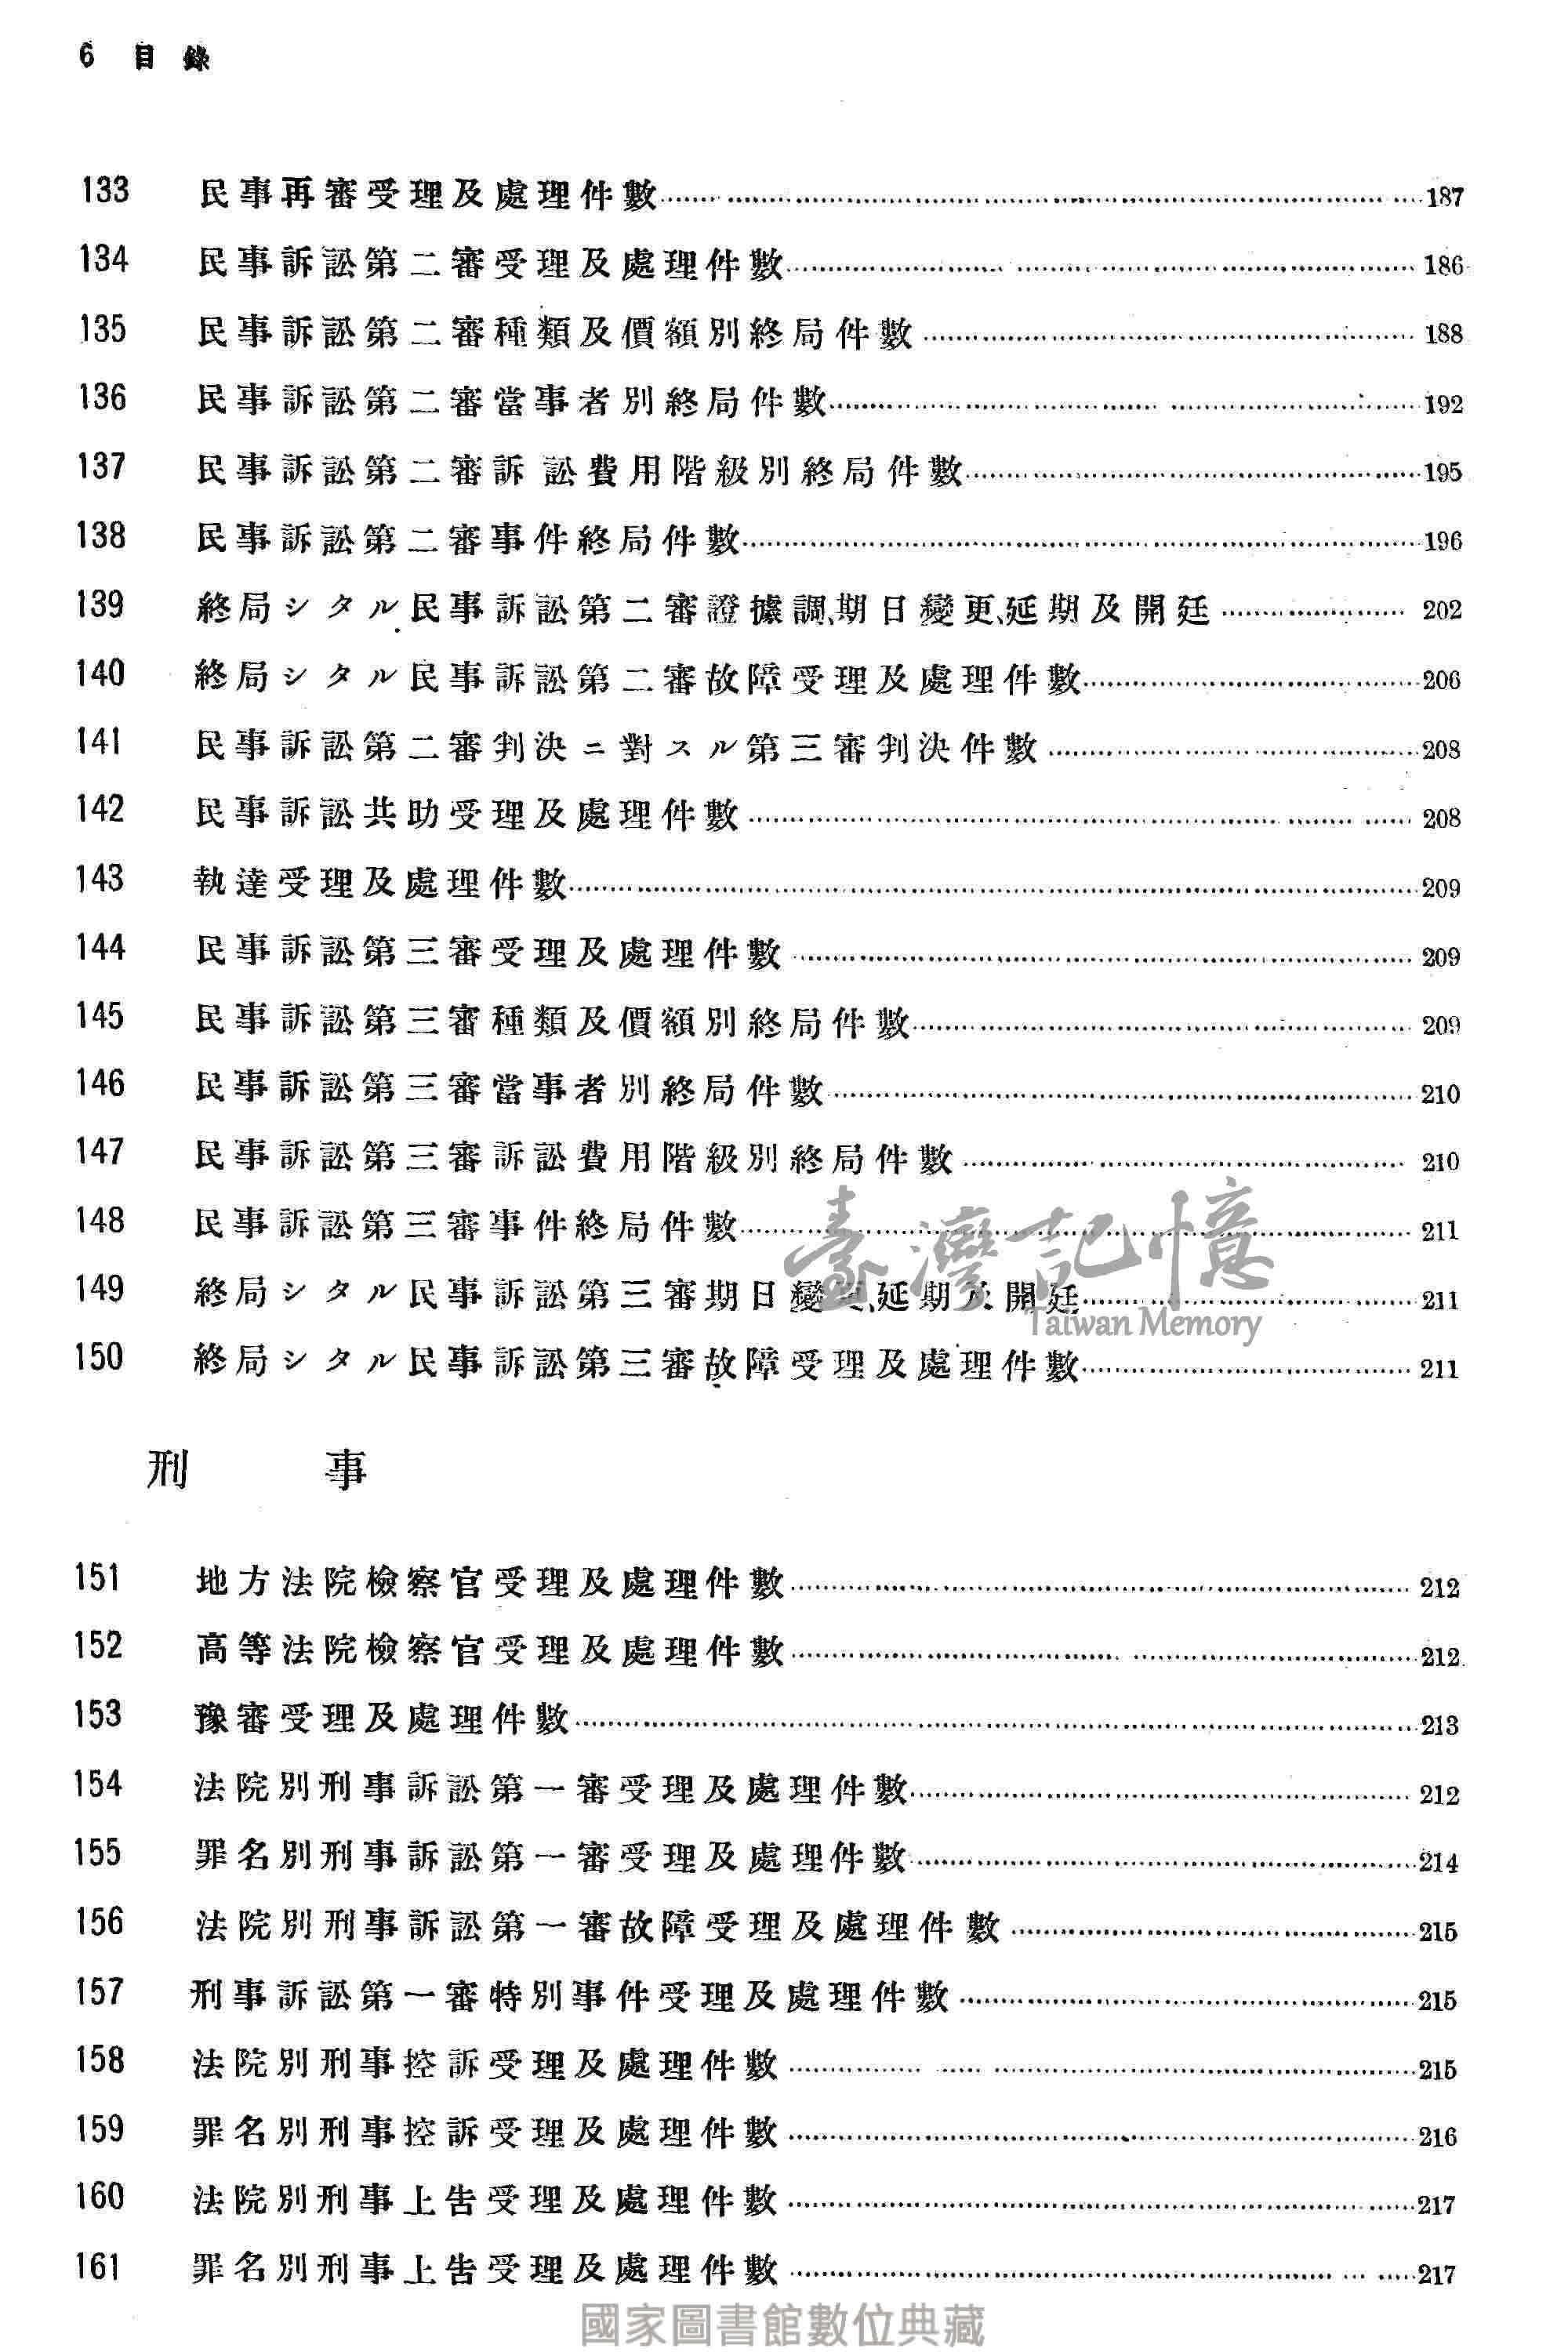 6 目錄
133 民事再審受理及處理件數……187
134 民事訴訟第二審受理及處理件數……186
135 民事訴訟第二審種類及價額別終局件數……188
136 民事訴訟第二審當事者別終局件數……192
137 民事訴訟第二審訴訟費用階級別終局件數……195
138 民事訴訟第二審事件終局件數……196
139 終局シタル民事訴訟第二審證據調、期日變更、延期及開廷……202
140 終局シタル民事訴訟第二審故障受理及處理件數……206
141 民事訴訟第二審判決ニ對スル第三審判決件數……208
142 民事訴訟共助受理及處理件數……208
143 執達受理及處理件數……209
144 民事訴訟第三審受理及處理件數……209
145 民事訴訟第三審種類及價額別終局件數……209
146 民事訴訟第三審當事者別終局件數……210
147 民事訴訟第三審訴訟費用階級別終局件數……210
148 民事訴訟第三審事件終局件數……211
149 終局シタル民事訴訟第三審期日變更、延期及開廷……211
150 終局シタル民事訴訟第三審故障受理及處理件數……211
臺灣記憶
Taiwan Memory
刑事
151 地方法院檢察官受理及處理件數……212
152 高等法院檢察官受理及處理件數……212
153 豫審受理及處理件數……213
154 法院別刑事訴訟第一審受理及處理件數……212
155 罪名別刑事訴訟第一審受理及處理件數……214
156 法院別刑事訴訟第一審故障受理及處理件數……215
157 刑事訴訟第一審特別事件受理及處理件數……215
158 法院別刑事控訴受理及處理件數……215
159 罪名別刑事控訴受理及處理件數……216
160 法院別刑事上告受理及處理件數……217
161 罪名別刑事上告受理及處理件數……217
國家圖書館數位典藏